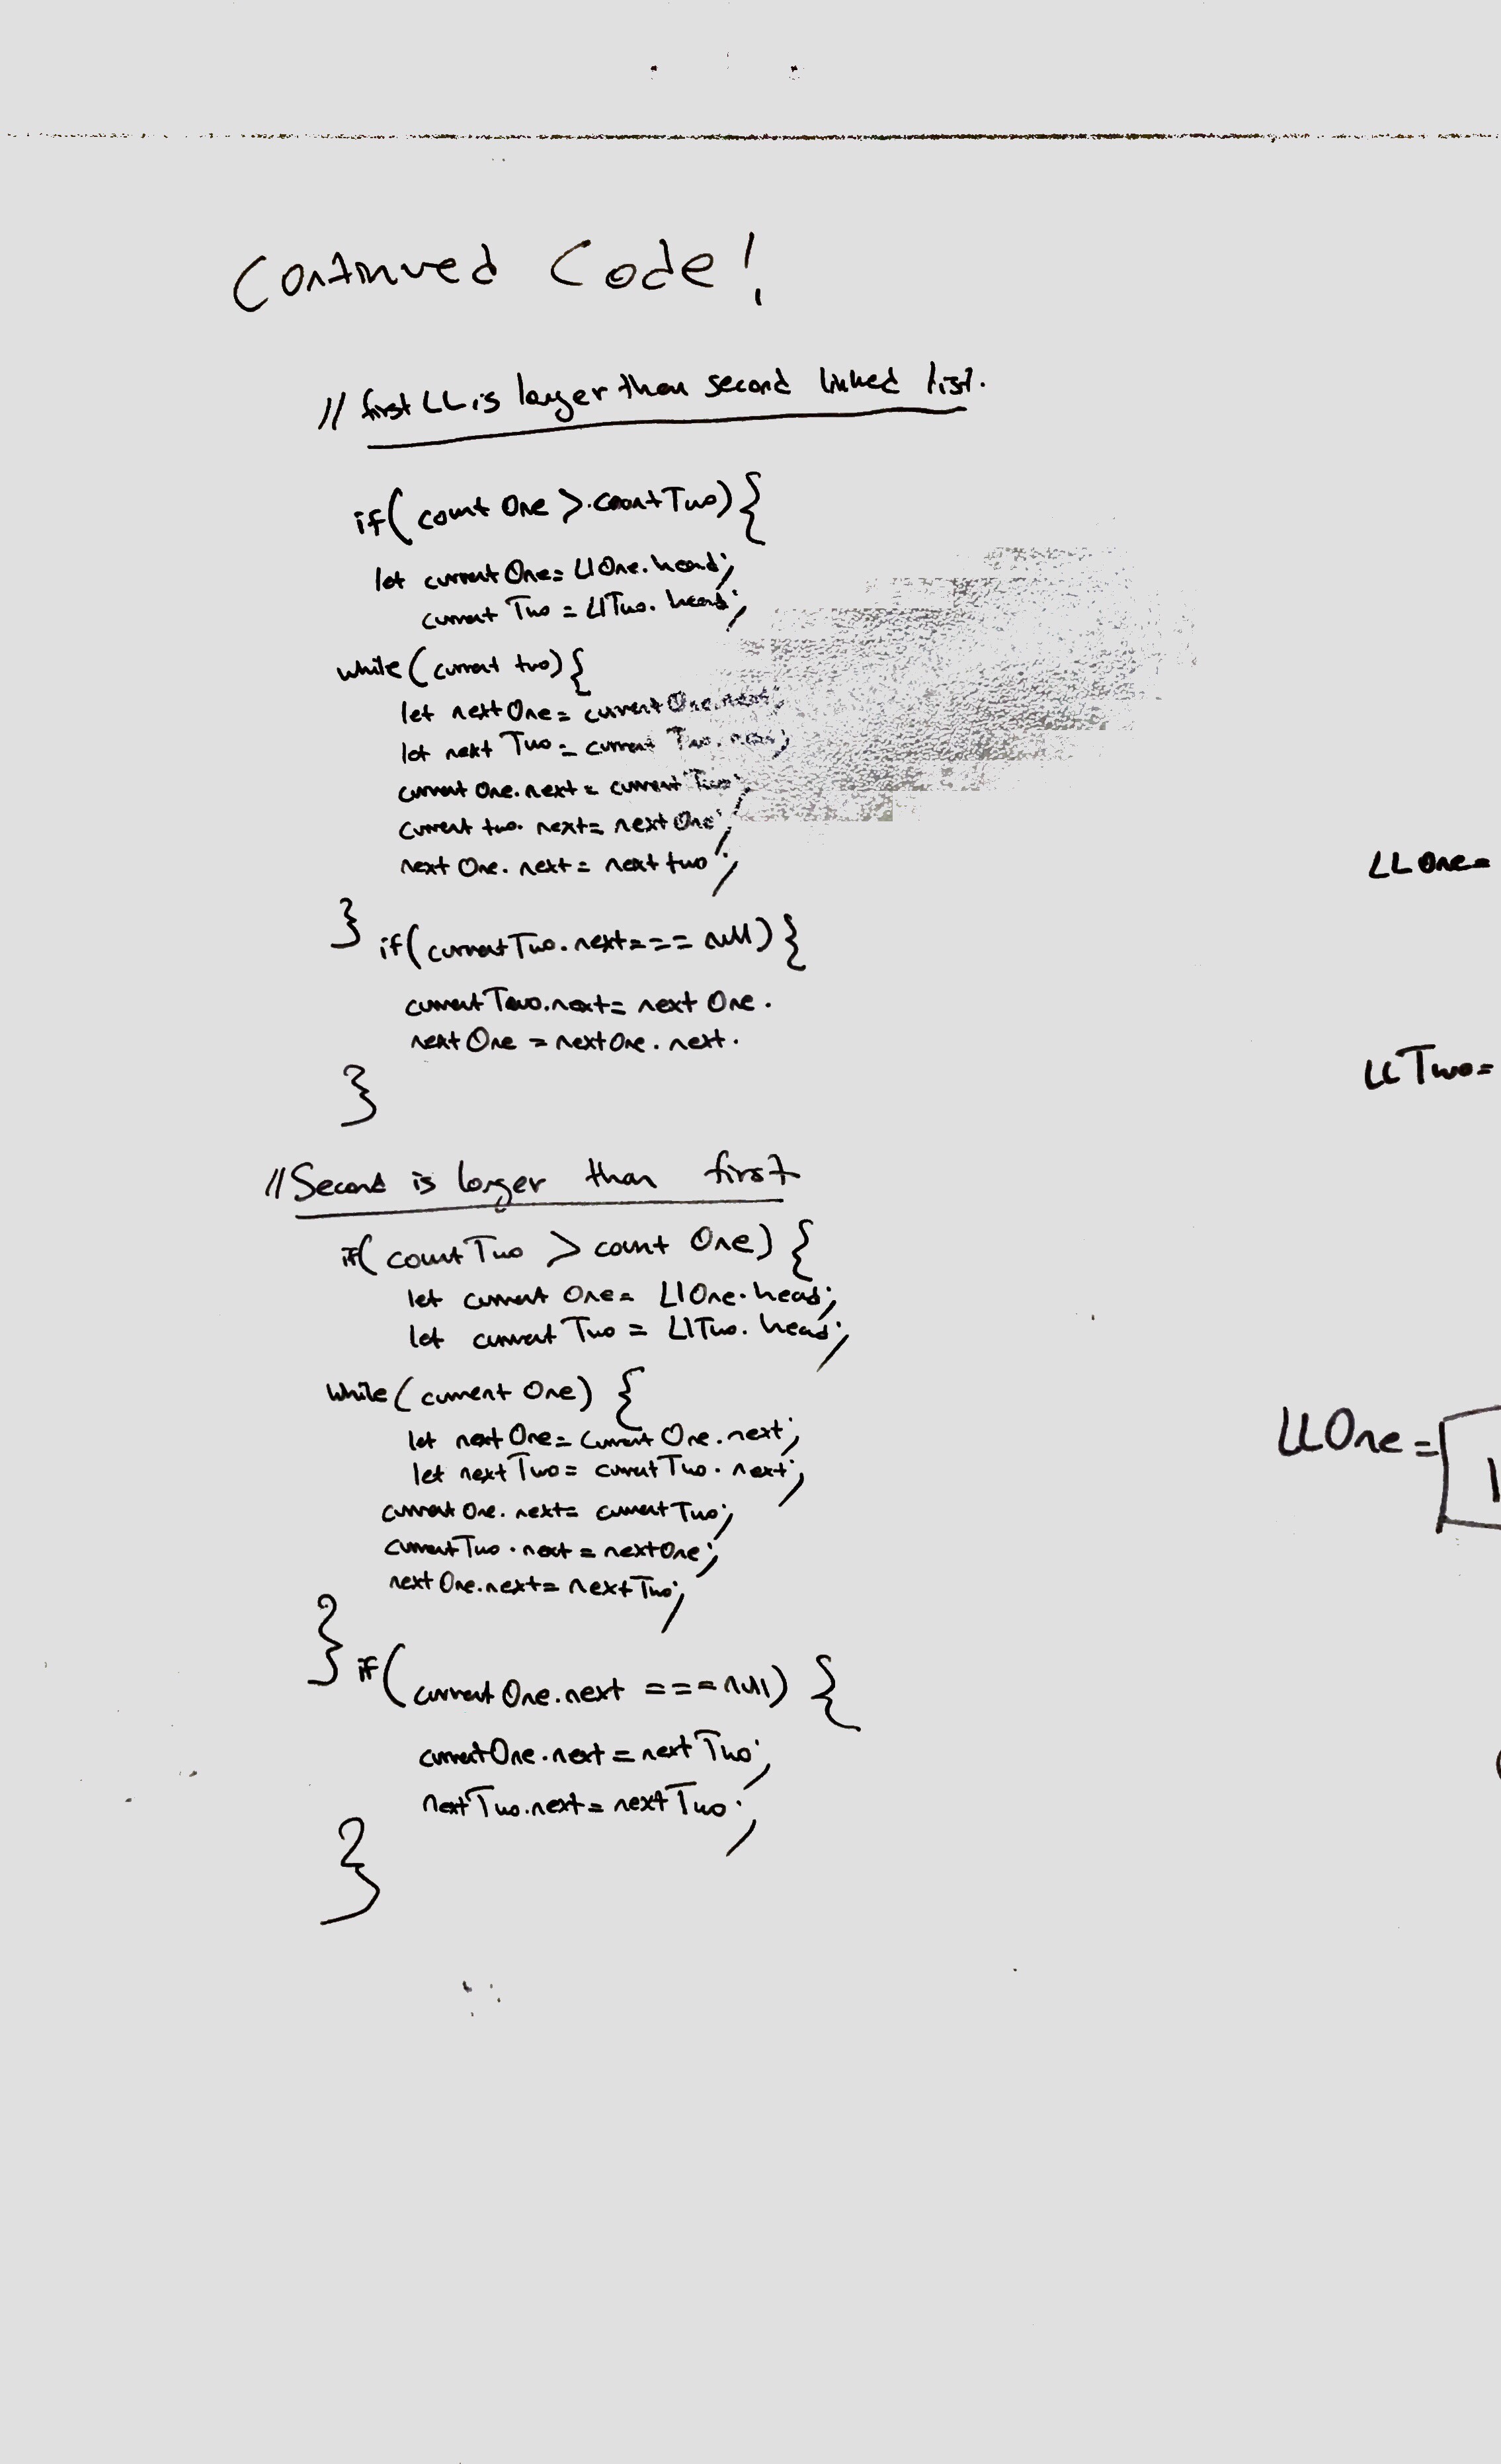 Continued Code!
// first LL is larger than second linked list.
if( count One > countTwo) {
let currentOne = LlOne.head;
current Two = LlTwo. head;
while (current two) {
let next One = current One.next;
let next Two = current Two. next;
current One. next = current Two;
current two. next = next One;
next One. next = next two;
} if( currentTwo. next === null) {
current Two.next = next One.
next One = nextOne. next.
}
// Second is larger than first
if( countTwo > count One) {
let current One = LlOne. head;
let current Two = LlTwo. head;
While (current One) {
let next One = Current One. next;
let nextTwo = currentTwo. next;
current One. next = current Two;
currentTwo. next = nextOne;
next One.next = nextTwo;
} if (current One.next === null) {
currentOne.next = next Two;
next Two.next = next Two;
}
LLOne =
LLTwo =
LLOne = 1